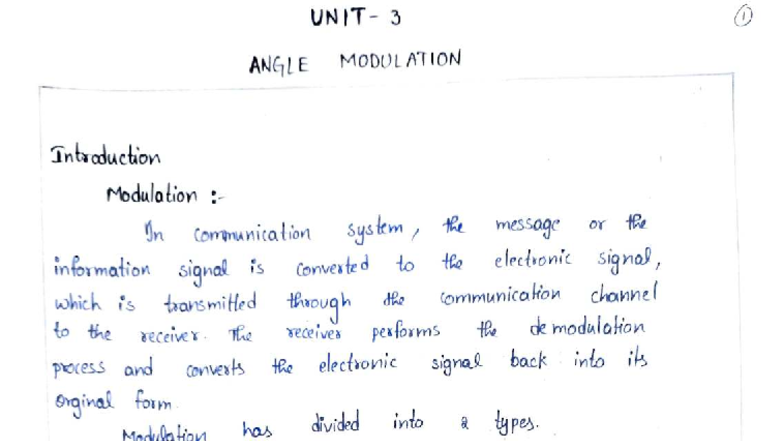 UNIT - 3
1
ANGLE MODULATION
Introduction
Modulation :-
In communication system, the message or the
information signal is converted to the electronic signal,
which is transmitted through the communication channel
to the receiver. The receiver performs the demodulation
process and converts the electronic signal back into its
orginal form.
Modulation has divided into 2 types.